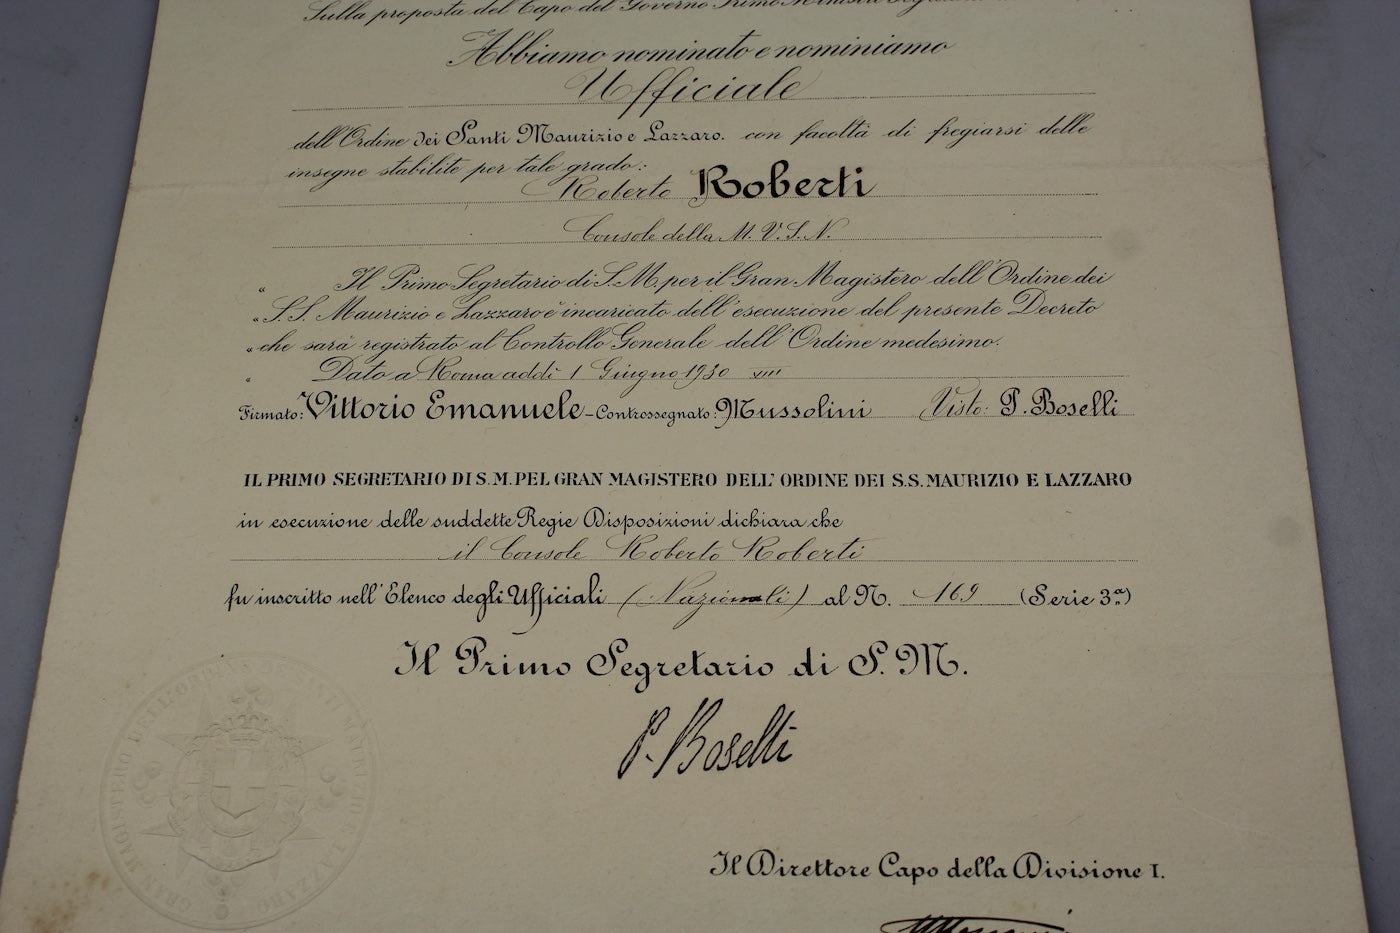 Sulla proposta del Capo del Governo Primo Ministro Segretario
Abbiamo nominato e nominiamo
Ufficiale
dell'Ordine dei Santi Maurizio e Lazzaro. con facoltà di fregiarsi delle
insegne stabilite per tale grado:
Roberto Roberti
Console della M. V. S. N.
„ Il Primo Segretario di S.M. per il Gran Magistero dell'Ordine dei
„ S.S. Maurizio e Lazzaro è incaricato dell'esecuzione del presente Decreto
„ che sarà registrato al Controllo Generale dell'Ordine medesimo.
„ Dato a Roma addì 1 Giugno 1930 VIII
Firmato: Vittorio Emanuele - Controssegnato: Mussolini Visto: P. Boselli
IL PRIMO SEGRETARIO DI S. M. PEL GRAN MAGISTERO DELL'ORDINE DEI S.S. MAURIZIO E LAZZARO
in esecuzione delle suddette Regie Disposizioni dichiara che
il Console Roberto Roberti
fu inscritto nell'Elenco degli Ufficiali (Nazionali) al N. 169 (Serie 3ª)
Il Primo Segretario di S. M.
P. Boselli
GRAN MAGISTERO DELL'ORDINE DEI SANTI MAURIZIO E LAZZARO
Il Direttore Capo della Divisione I.